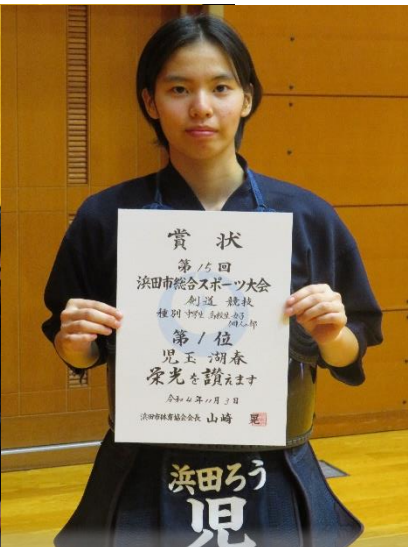 賞状
第15回
浜田市総合スポーツ大会
剣道 競技
種別 中学生 高校生 女子
個人の部
第1位
児玉 湖春
栄光を讃えます
令和4年11月3日
浜田市体育協会会長 山崎 晃
浜田ろう
児